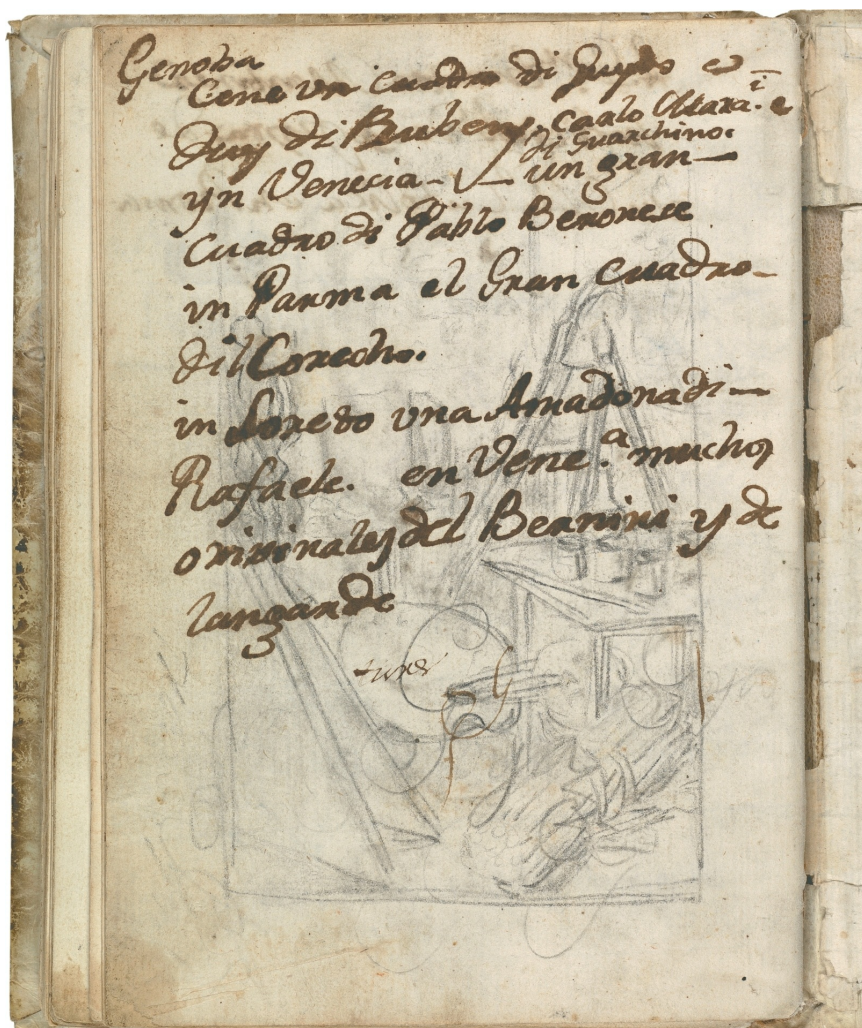 Genoba
Cene un cuadro di Guydo e
duy di Rubeny. carlo Maxa.ⁱ e
di Guarchino.
yn Venecia - un gran
Cuadro di Pablo Beronese
in Parma el Gran Cuadro
dil Corecho.
in Loreto una Amadona di
Rafaele. en Vene.ª muchos
orixinales del Bernini y de
langarde